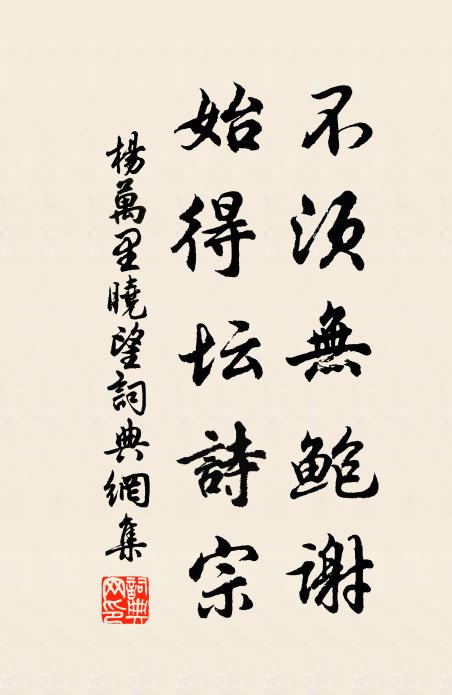 不须無鮑谢
始得坛詩宗
楊萬里曉望詞典網集
詞典網印